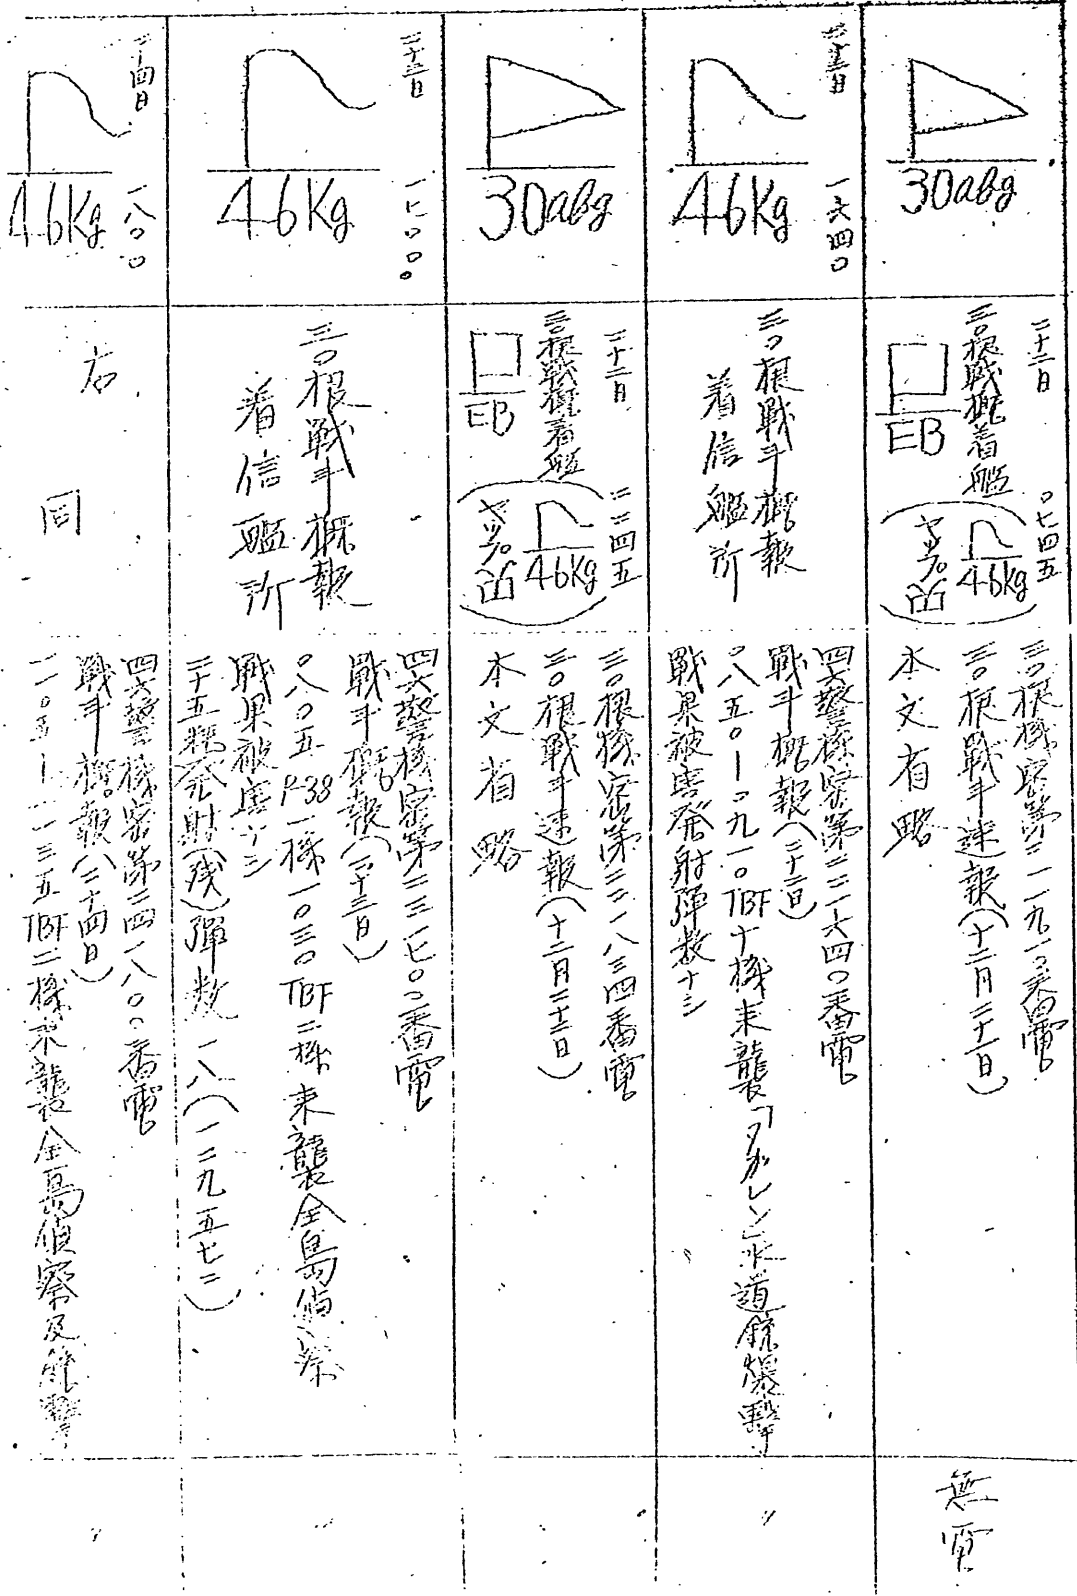 30abg
二十二日 〇七四五
三〇根戦概着艦
EB
46Kg
三〇根機密第二一一九一〇番電
三〇根戦斗速報(十二月二十一日)
本文省略
無電
二十二日 一六四〇
46Kg
三〇根戦斗概報
着信艦所
四六警機密第二二一六四〇番電
戦斗概報(二十二日)
〇八五〇―〇九一〇TBF十機来襲「アガレン」水道銃爆撃
戦果被害発射弾数ナシ
〃
30abg
二十二日 二二四五
三〇根戦概着艦
EB
46Kg
三〇根機密第二二一八三四番電
三〇根戦斗速報(十二月二十二日)
本文省略
〃
二十三日 一七〇〇
46Kg
三〇根戦斗概報
着信艦所
四六警機密第二三一七〇〇番電
戦斗概報(二十三日)
〇八〇五P-38一機一〇三〇TBF二機来襲全島偵察
戦果被害ナシ
二十五粍発射(残)弾数一八(一二九五七二)
〃
二十四日 一八〇〇
46Kg
右同
四六警機密第二四一八〇〇番電
戦斗概報(二十四日)
一一〇五―一一三五TBF二機来襲全島偵察及銃撃
〃